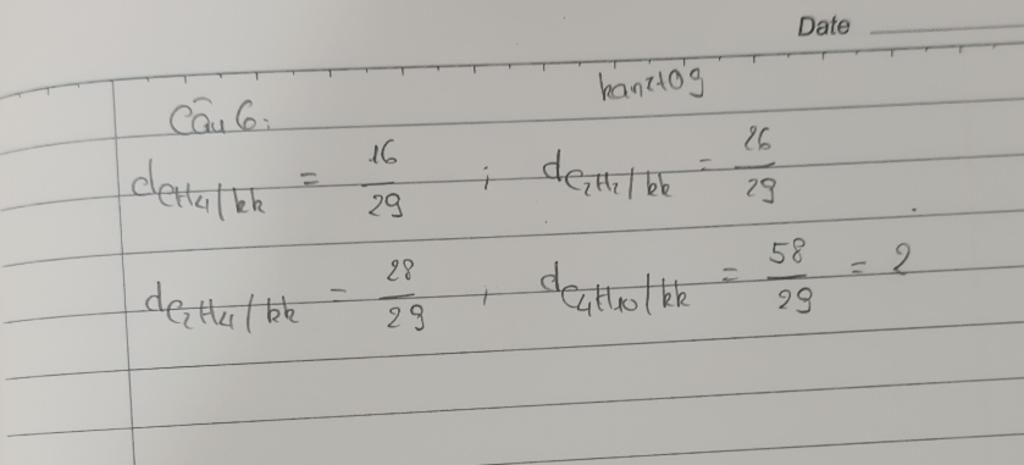 Date
kanz+0g
Câu 6:
dCH4/kk = 16/29 ; dC2H2/kk = 26/29
dC2H4/kk = 28/29 , dC4H10/kk = 58/29 = 2